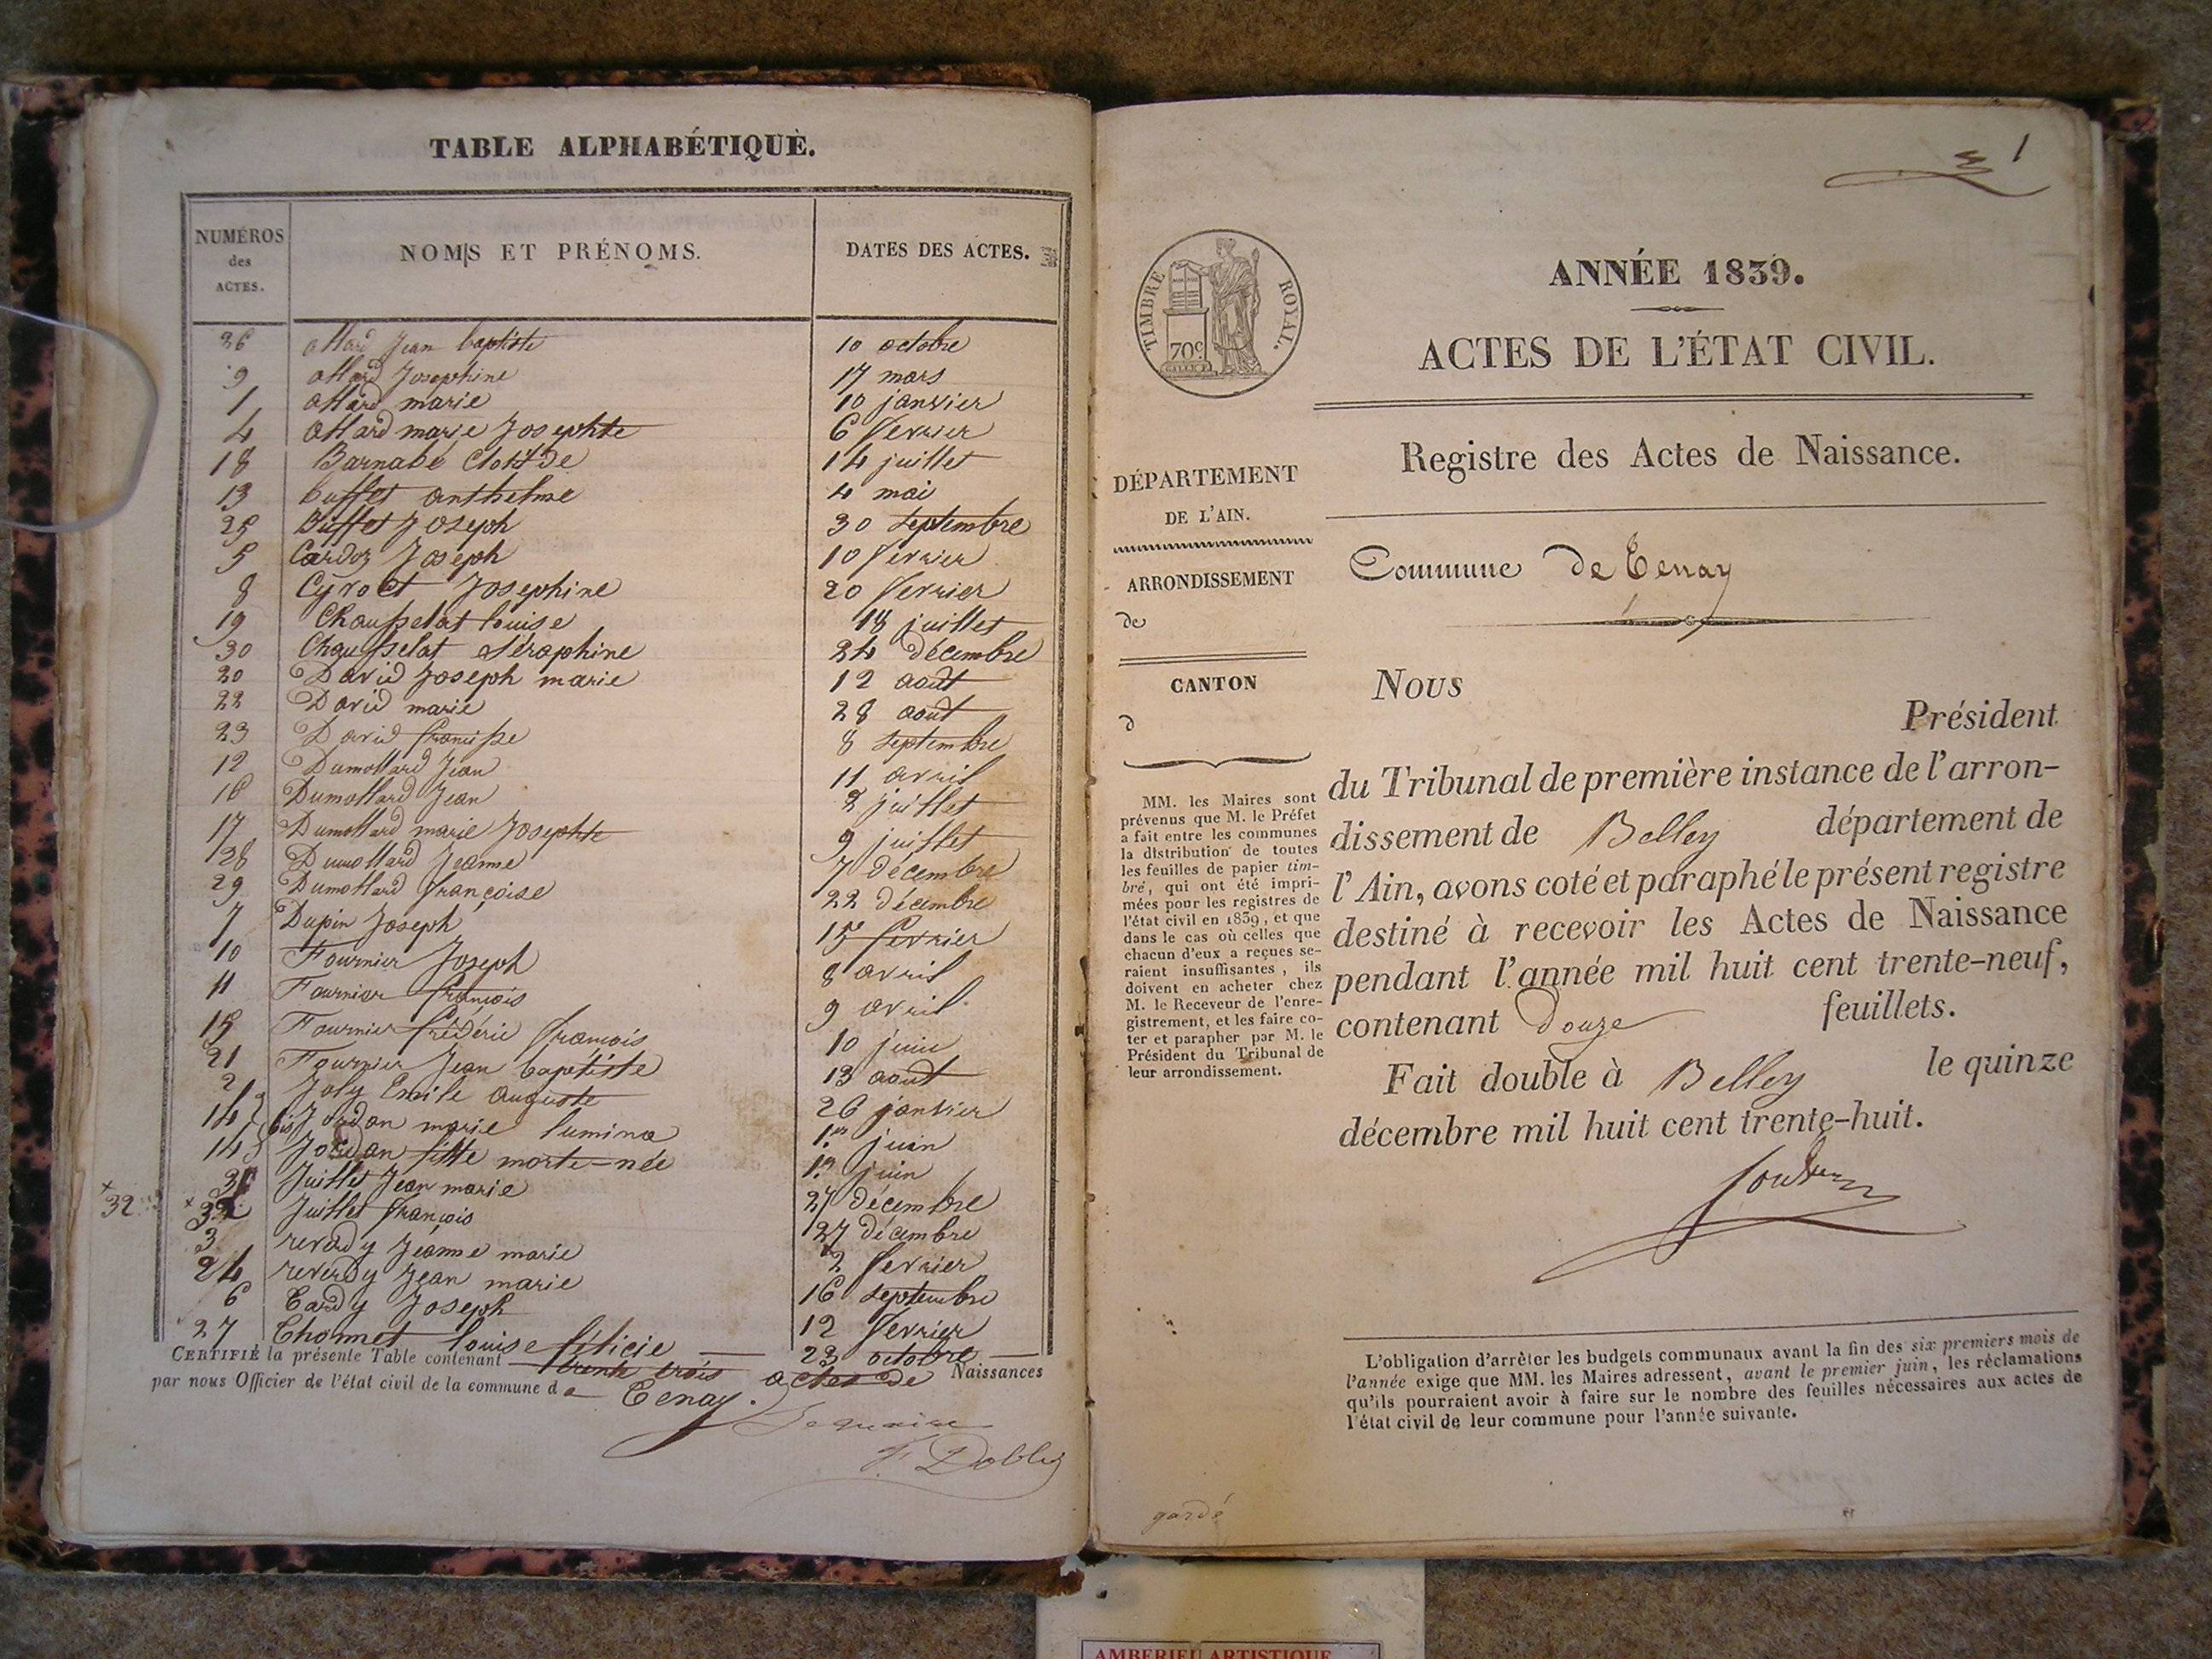 TABLE ALPHABÉTIQUE.
NUMÉROS des ACTES. NOMS ET PRÉNOMS. DATES DES ACTES.
26 allard Jean baptiste 10 octobre
9 allard Josephine 17 mars
1 allard marie 10 janvier
4 allard marie Josephte 6 fevrier
18 Barnabé Clotilde 14 juillet
13 buffet anthelme 4 mai
25 Buffet Joseph 30 septembre
5 Cardoz Joseph 10 fevrier
8 Cyroct Josephine 20 fevrier
19 Chausselat louise 18 juillet
30 Chausselat Séraphine 24 décembre
20 David Joseph marie 12 août
22 David marie 28 août
23 David 8 septembre
12 Dumollard Jean 11 avril
16 Dumollard Jean 8 juillet
17 Dumollard marie Josephte 9 juillet
28 Dumollard Jeanne 7 décembre
29 Dumollard françoise 22 décembre
7 Dupin Joseph 15 fevrier
10 Fournier Joseph 8 avril
11 Fournier françois 9 avril
15 Fournier frédéric françois 10 juin
21 Fournier Jean baptiste 13 août
2 Joly Emile auguste 26 janvier
14 bis Jordan marie lumina 1.er juin
14 Jordan fille morte-née 1.er juin
31 Juillet Jean marie 27 décembre
× 32 × 32 Juillet françois 27 décembre
3 reverdy Jeanne marie 2 fevrier
24 reverdy Jean marie 16 septembre
6 Tardy Joseph 12 fevrier
27 Thomet louise félicie 23 octobre
CERTIFIÉ la présente Table contenant trente trois actes de Naissances
par nous Officier de l'état civil de la commune de Tenay.
F. Dobley
1
TIMBRE ROYAL.
70c
ANNÉE 1839.
ACTES DE L'ÉTAT CIVIL.
Registre des Actes de Naissance.
DÉPARTEMENT
DE L'AIN.
ARRONDISSEMENT
de
CANTON
d
MM. les Maires sont
prévenus que M. le Préfet
a fait entre les communes
la distribution de toutes
les feuilles de papier tim-
bré, qui ont été impri-
mées pour les registres de
l'état civil en 1839, et que
dans le cas où celles que
chacun d'eux a reçues se-
raient insuffisantes, ils
doivent en acheter chez
M. le Receveur de l'enre-
gistrement, et les faire co-
ter et parapher par M. le
Président du Tribunal de
leur arrondissement.
Commune de Tenay
Nous
Président
du Tribunal de première instance de l'arron-
dissement de Belley département de
l'Ain, avons coté et paraphé le présent registre
destiné à recevoir les Actes de Naissance
pendant l'année mil huit cent trente-neuf,
contenant douze feuillets.
Fait double à Belley le quinze
décembre mil huit cent trente-huit.
L'obligation d'arrêter les budgets communaux avant la fin des six premiers mois de
l'année exige que MM. les Maires adressent, avant le premier juin, les réclamations
qu'ils pourraient avoir à faire sur le nombre des feuilles nécessaires aux actes de
l'état civil de leur commune pour l'année suivante.
gardé
AMBERIEU ARTISTIQUE